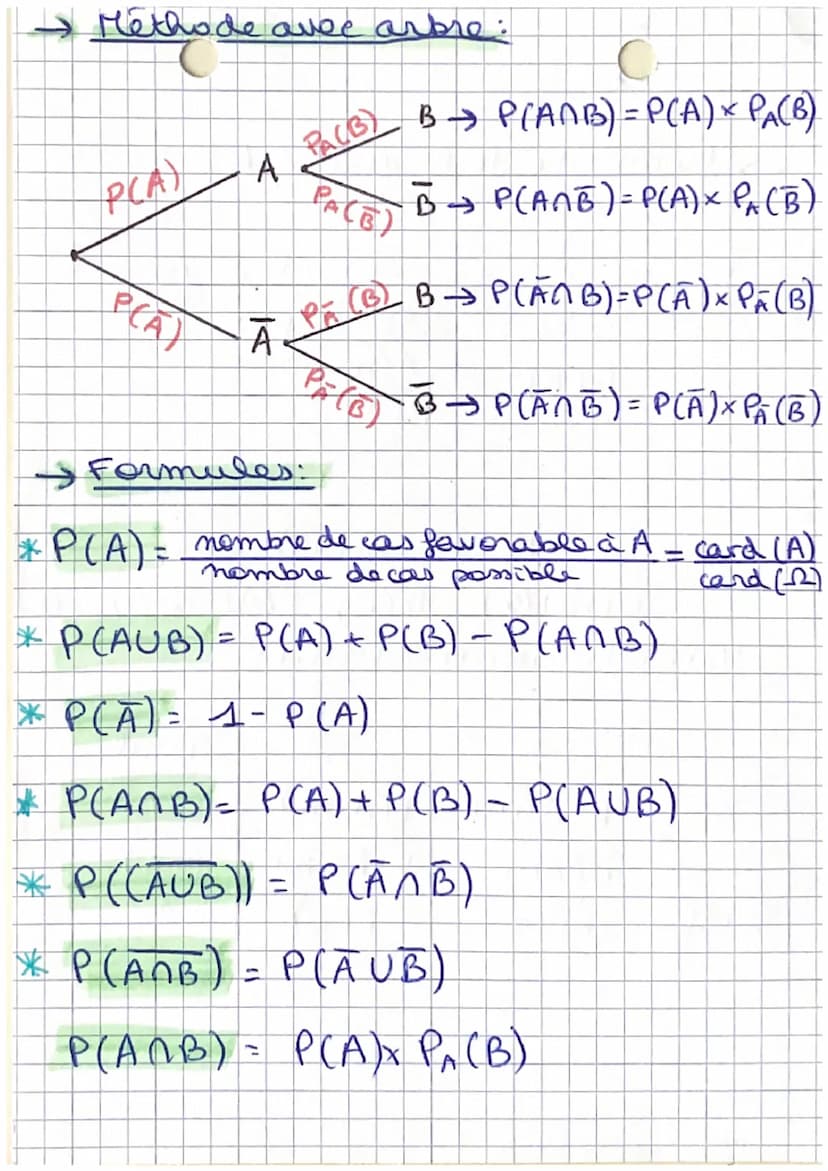 → Méthode avec arbre :
P(A) A PA(B) B → P(A∩B) = P(A) × PA(B)
PA(B̅) B̅ → P(A∩B̅) = P(A) × PA(B̅)
P(A̅) A̅ PA̅(B) B → P(A̅∩B) = P(A̅) × PA̅(B)
PA̅(B̅) B̅ → P(A̅∩B̅) = P(A̅) × PA̅(B̅)
→ Formules :
* P(A) = nombre de cas favorable à A / nombre de cas possible = card (A) / card (Ω)
* P(A∪B) = P(A) + P(B) - P(A∩B)
* P(A̅) = 1 - P(A)
* P(A∩B) = P(A) + P(B) - P(A∪B)
* P((A̅∪̅B̅)) = P(A̅∩B̅)
* P(A̅∩̅B̅) = P(A̅∪B̅)
P(A∩B) = P(A) × PA(B)